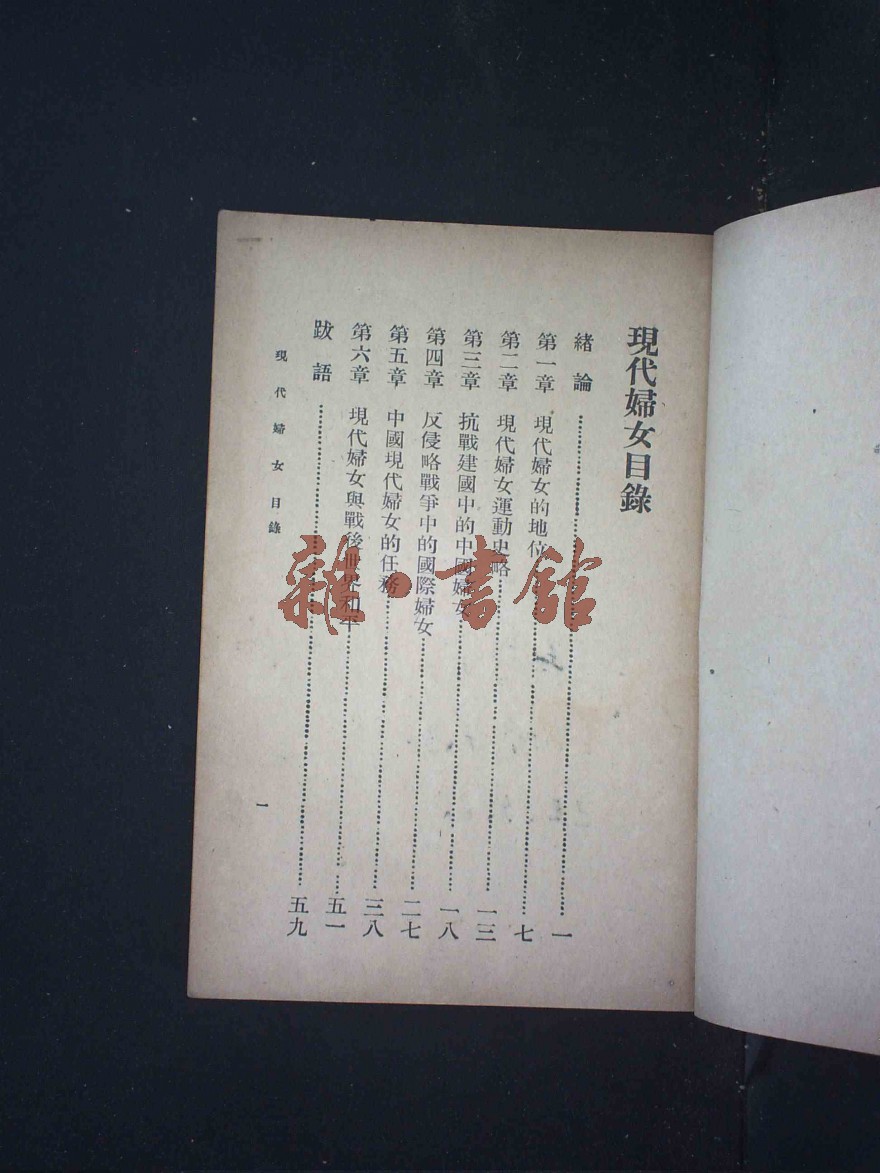 現代婦女目錄
緒論……一
第一章 現代婦女的地位……七
第二章 現代婦女運動史略……一三
第三章 抗戰建國中的中國婦女……一八
第四章 反侵略戰爭中的國際婦女……二七
第五章 中國現代婦女的任務……三八
第六章 現代婦女與戰後世界和平……五一
跋語……五九
現代婦女目錄 一
雜·書館